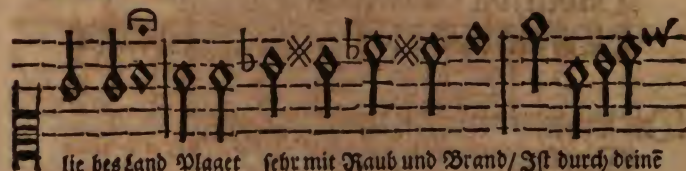 lie bes Land Plaget sehr mit Raub und Brand/ Ist durch deinē